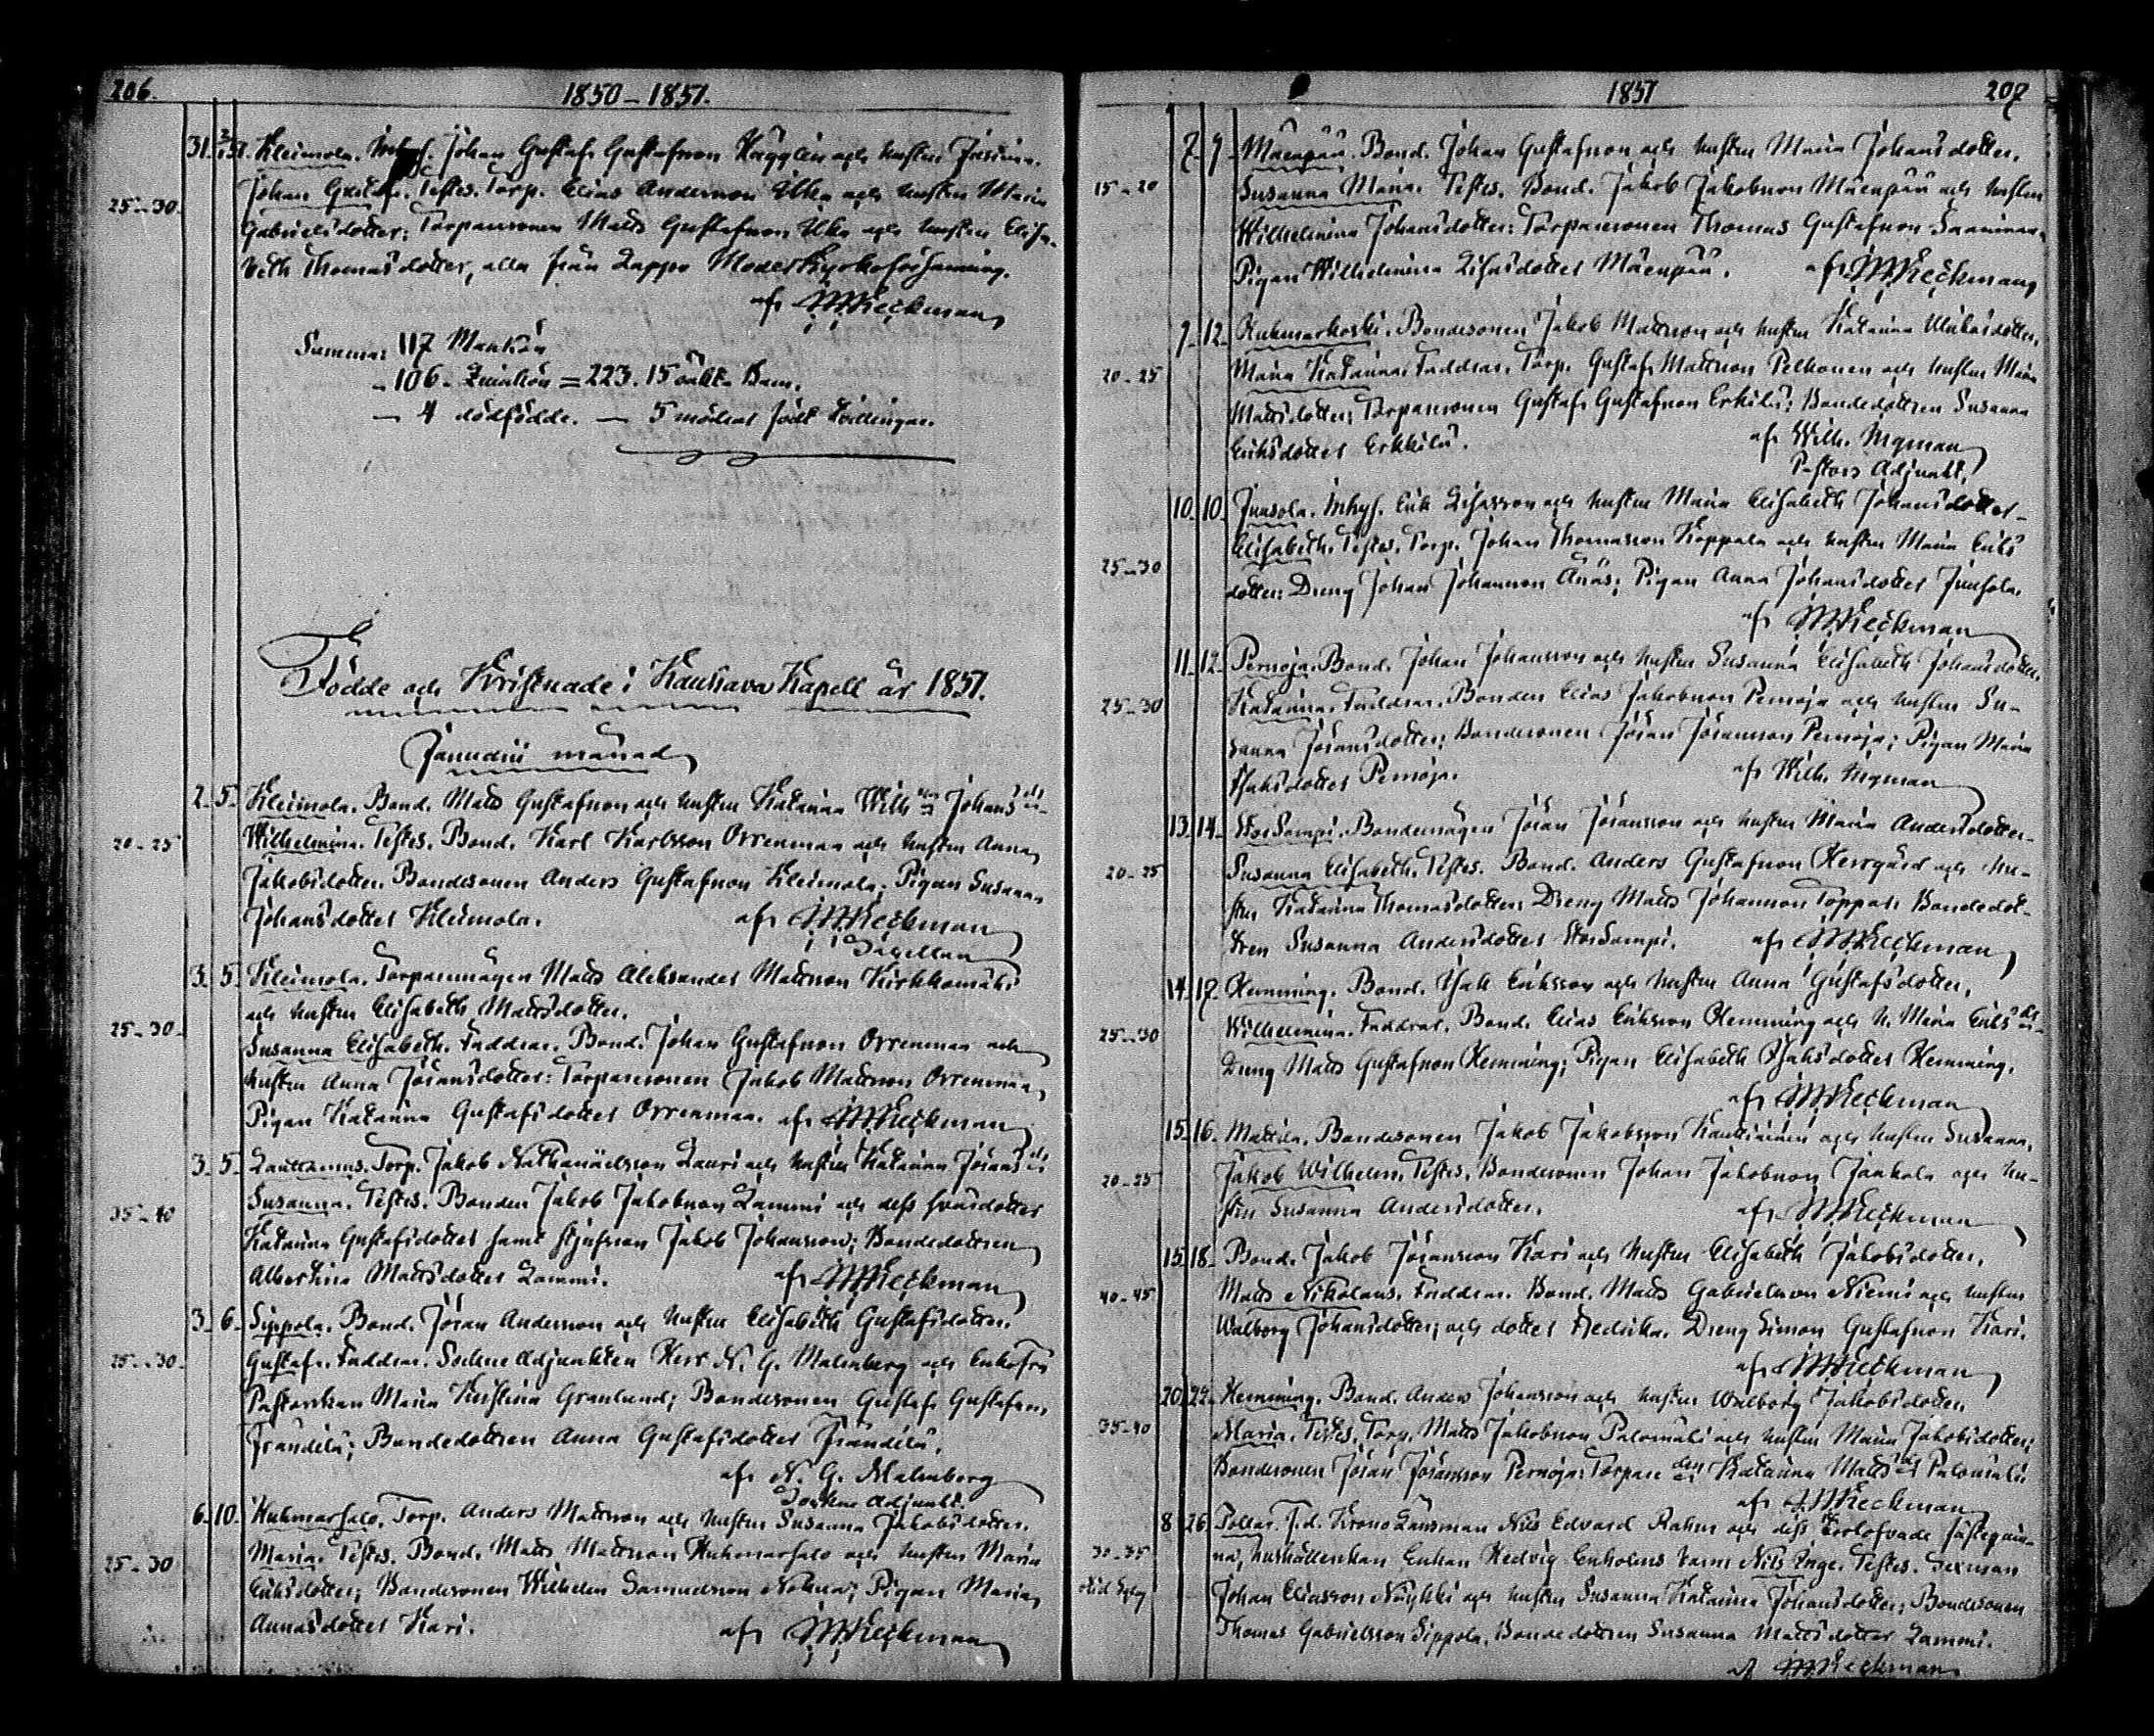 206.
1850–1851.
31. Kleimola. Inhys. Johan Gustaf Gustafsson Hägglin och hustru
25–30. Johan Gustaf. Testes. Torp. Elias Andersson Ilka och hustru Maria
Gabrielsdotter; Torparesonen Matts Gustafsson Ilka och hustru Elisa-
beth Thomasdotter, alla från Lappo Moderkyrkoförsamling.
af J.M. Keckman
Summa: 117 Mankön
– 106. Qvinkön = 223. 15 oäkt. Barn.
– 4 dödfödde. – 5 mödrar födt Tvillingar.
Födde och Kristnade i Kauhava Kapell år 1851.
Januarii månad
2. 5. Kleimola. Bond. Matts Gustafsson och hustru Katarina Wilh. Johans dr.
20–25 Wilhelmina. Testes. Bond. Karl Karlsson Orrenmaa och hustru Anna
Jakobsdotter. Bondesonen Anders Gustafsson Kleimola; Pigan Susanna
Johansdotter Kleimola. af J.M. Keckman
3. 5. Kleimola. Torparemågen Matts Aleksander Mattsson Kirkkomäki
och hustru Elisabeth Mattsdotter.
25–30. Susanna Elisabeth. Faddrar. Bond. Johan Gustafsson Orrenmaa och
hustru Anna Jöransdotter: Torparesonen Jakob Mattsson Orrenmaa,
Pigan Katarina Gustafsdotter Orrenmaa. af J.M. Keckman
3. 5. Torp. Jakob Nathanaelsson Lauri och hustru Katarina Jörans dr.
35–40 Susanna. Testes. Bonden Jakob Jakobsson Lammi och dess svärdotter
Katarina Gustafsdotter samt styfson Jakob Johansson; Bondedottren
Albertina Mattsdotter Lammi. af J.M. Keckman
3. 6. Sippola. Bond. Jöran Andersson och hustru Elisabeth Gustafsdotter.
25–30. Gustaf. Faddrar. Sockne Adjunkten Herr N. G. Malmberg och Enkefru
Pastorskan Maria Kristina Granlund; Bondesonen Gustaf Gustafsson
Frändilä; Bondedottren Anna Gustafsdotter Frändilä.
af N. G. Malmberg
Sockne Adjunkt.
6. 10. Huhmarsalo. Torp. Anders Mattsson och hustru Susanna Jakobsdotter.
25–30 Maria. Testes. Bond. Matts Mattsson Huhmarsalo och hustru Maria
Eriksdotter; Bondesonen Wilhelm Samuelsson Nohua; Pigan Maria
Annasdotter Kari. af J.M. Keckman
1851
207
7. 9. Mäenpää. Bond. Johan Gustafsson och hustru Maria Johansdotter.
15–20 Susanna Maria. Testes. Bond. Jakob Jakobsson Mäenpää och hustru
Wilhelmina Johansdotter: Torparesonen Thomas Gustafsson
Pigan Wilhelmina Eliasdotter Mäenpää. af J.M. Keckman
9. 12. Ruhmarkoski. Bondesonen Jakob Mattsson och hustru Katarina
20–25 Maria Katarina. Faddrar. Torp. Gustaf Mattsson Pelkonen och hustru Maria
Mattsdotter; Torparesonen Gustaf Gustafsson Erkkilä; Bondedottren Susanna
Eriksdotter Erkkilä. af Wilh. Nyman
Pastors Adjunkt.
10. 10. Juusola. Inhys. Erik Eliasson och hustru Maria Elisabeth Johansdotter.
25–30 Elisabeth. Testes. Torp. Johan Thomasson Koppala och hustru Maria Eriks
dotter: Dreng Johan Johansson Äijäs; Pigan Anna Johansdotter Juusola.
af J.M. Keckman
11. 12. Pernaja. Bond. Johan Johansson och hustru Susanna Elisabeth Johansdotter.
25–30 Katarina. Faddrar. Bonden Elias Jakobsson Pernaja och hustru Su-
sanna Jöransdotter; Bondesonen Jöran Jöransson Pernaja; Pigan Maria
Isaksdotter Pernaja. af Wilh. Nyman
13. 14. Storsampi. Bondemågen Jöran Jöransson och hustru Maria Andersdotter.
20–25 Susanna Elisabeth. Testes. Bond. Anders Gustafsson Herrgård och hu-
stru Katarina Thomasdotter; Dreng Matts Johansson Toppar: Bondedot-
tren Susanna Andersdotter Storsampi. af J.M. Keckman
14. 17. Hemming. Bond. Isak Eriksson och hustru Anna Gustafsdotter.
25–30 Wilhelmina. Faddrar. Bond. Elias Eriksson Hemming och h. Maria Eriks dr.
Dreng Matts Gustafsson Hemming; Pigan Elisabeth Isaksdotter Hemming.
af J.M. Keckman
15. 16. Mattila. Bondesonen Jakob Jakobsson och hustru Susanna.
20–25 Jakob Wilhelm. Testes. Bondesonen Johan Jakobsson Jaakola och hu-
stru Susanna Andersdotter. af J.M. Keckman
15. 18. Bond. Jakob Jöransson Kari och hustru Elisabeth Jakobsdotter.
40–45 Matts Nikolaus. Faddrar. Bond. Matts Gabrielsson Niemi och hustru
Walborg Johansdotter; och dotter Fredrika. Dreng Simon Gustafsson Kari.
af J.M. Keckman
20. 22. Hemming. Bond. Anders Johansson och hustru Walborg Jakobsdotter.
35–40 Maria. Testes. Torp. Matts Jakobsson Palomäki och hustru Maria Jakobsdotter;
Bondesonen Jöran Jöransson Pernaja; Torpare dtr Katarina Matts dr Palomäki
af J.M. Keckman
8 26 Pollar. T.d. Krono Länsman Nils Edvard Rahm och dess trolofvade fästeqvin-
30–35 na, hushållerskan Enkan Hedvig Enholms barn Nils Inge. Testes. Sexman
Johan Eliasson Näykki och hustru Susanna Katarina Johansdotter; Bondesonen
Thomas Gabrielsson Sippola, Bondedottren Susanna Mattsdotter Lammi.
af J.M. Keckman